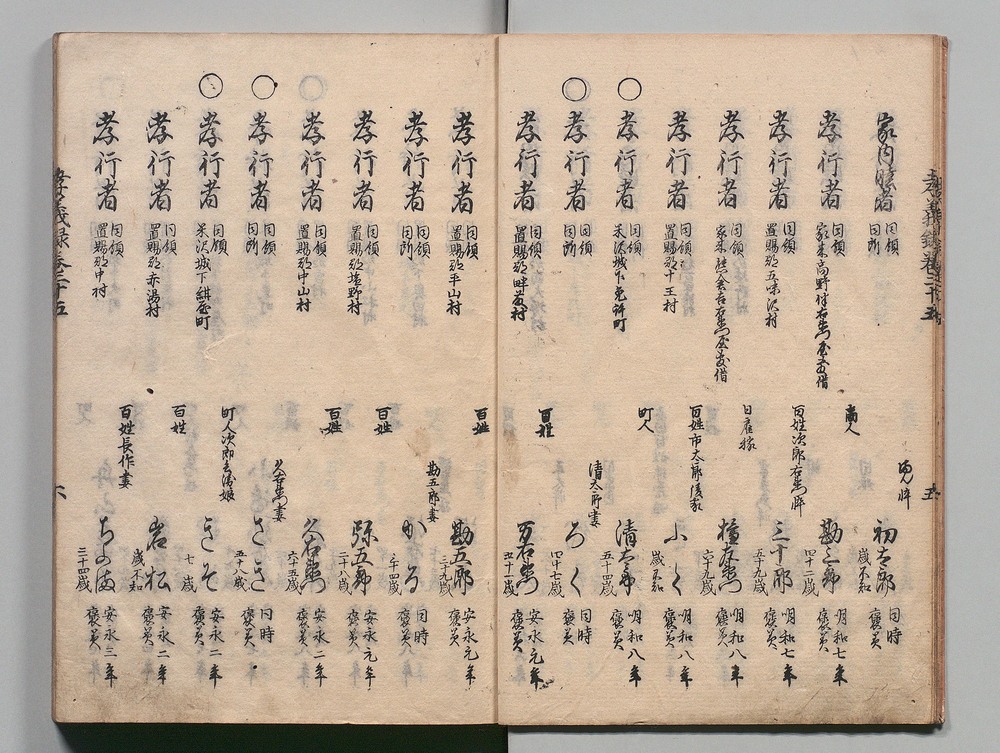 家内睦者 同領 同所 忰 初太郎 歳不知 同時 褒美
孝行者 同領 家来高野村右衛門屋敷借 商人 勘三郎 四十二歳 明和七年 褒美
孝行者 同領 置賜郡五味沢村 百姓次郎右衛門忰 三十郎 五十九歳 明和七年 褒美
孝行者 同領 右衛門屋敷借 日雇稼 権右衛門 六十九歳 明和八年 褒美
孝行者 同領 置賜郡十王村 百姓市太郎後家 ふく 歳不知 明和八年 褒美
○孝行者 同領 米沢城下免許町 町人 清太郎 五十四歳 明和八年 褒美
○孝行者 同領 同所 清太郎妻 ろく 四十七歳 同時 褒美
孝行者 同領 置賜郡 村 百姓 五十一歳 安永元年 褒美
孝行者 同領 置賜郡平山村 百姓 勘五郎 三十九歳 安永元年 褒美
孝行者 同領 同所 勘五郎妻 かる 三十四歳 同時 褒美
孝行者 同領 置賜郡 野村 百姓 弥五郎 二十八歳 安永元年 褒美
○孝行者 同領 百姓 久右衛門 六十五歳 安永二年 褒美
○孝行者 同領 同所 久右衛門妻 さき 五十八歳 同時 褒美
○孝行者 同領 米沢城下紺屋町 町人次郎兵衛娘 きそ 七歳 安永二年 褒美
孝行者 同領 置賜郡赤湯村 百姓 岩松 歳不知 安永二年 褒美
孝行者 同領 置賜郡中村 百姓長作妻 三十四歳 安永三年 褒美
孝義録 巻三十五 五
孝義録 巻三十五 六